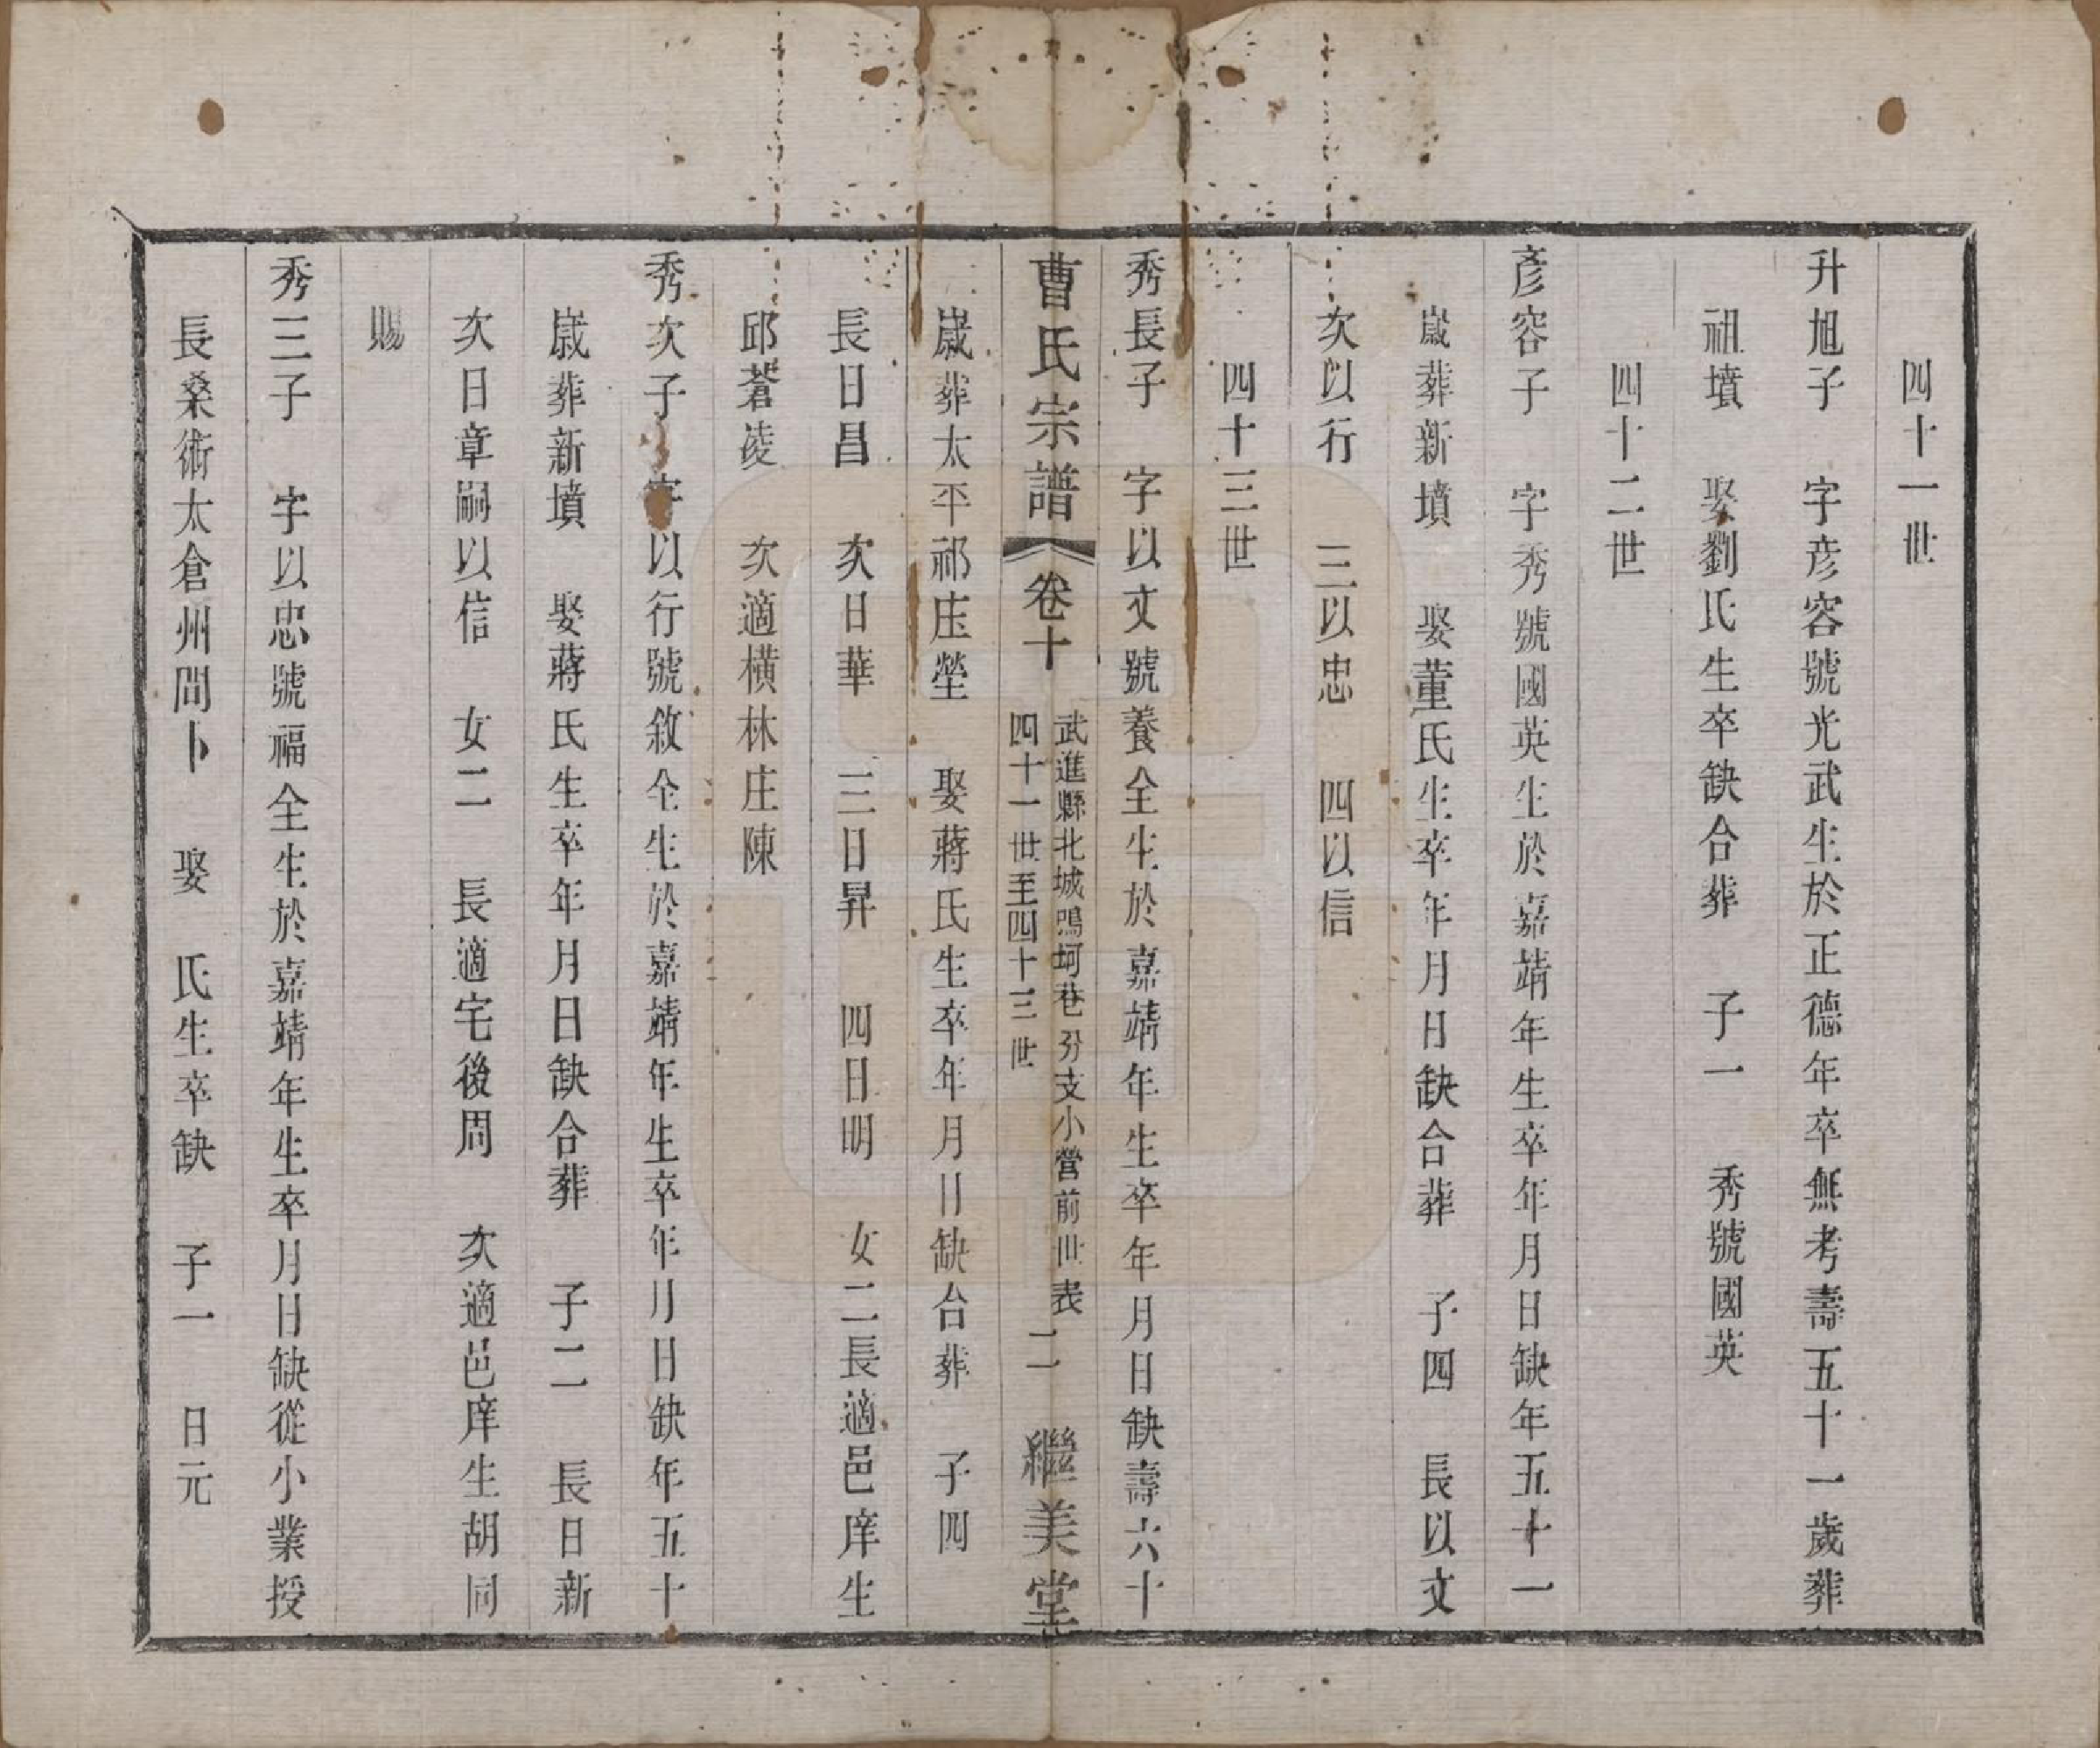 四十一世
升旭子　字彥容號光武生於正德年卒無考壽五十一歲葬
祖墳　娶劉氏生卒缺合葬　子一　秀號國英
四十二世
彥容子　字秀號國英生於嘉靖年生卒年月日缺年五十一
歲葬新墳　娶董氏生卒年月日缺合葬　子四　長以文
次以行　三以忠　四以信
四十三世
秀長子　字以文號養全生於嘉靖年生卒年月日缺壽六十
曹氏宗譜　卷十　武進縣北城鳴珂巷分支小營前世表　二　繼美堂
四十一世至四十三世
歲葬太平祁庄塋　娶蔣氏生卒年月日缺合葬　子四
長日昌　次日華　三日昇　四日明　女二長適邑庠生
邱蒼凌　次適橫林庄陳
秀次子　字以行號敘全生於嘉靖年生卒年月日缺年五十
歲葬新墳　娶蔣氏生卒年月日缺合葬　子二　長日新
次日章嗣以信　女二　長適宅後周　次適邑庠生胡同
賜
秀三子　字以忠號福全生於嘉靖年生卒月日缺從小業授
長桑術太倉州問卜　娶　氏生卒缺　子一　日元